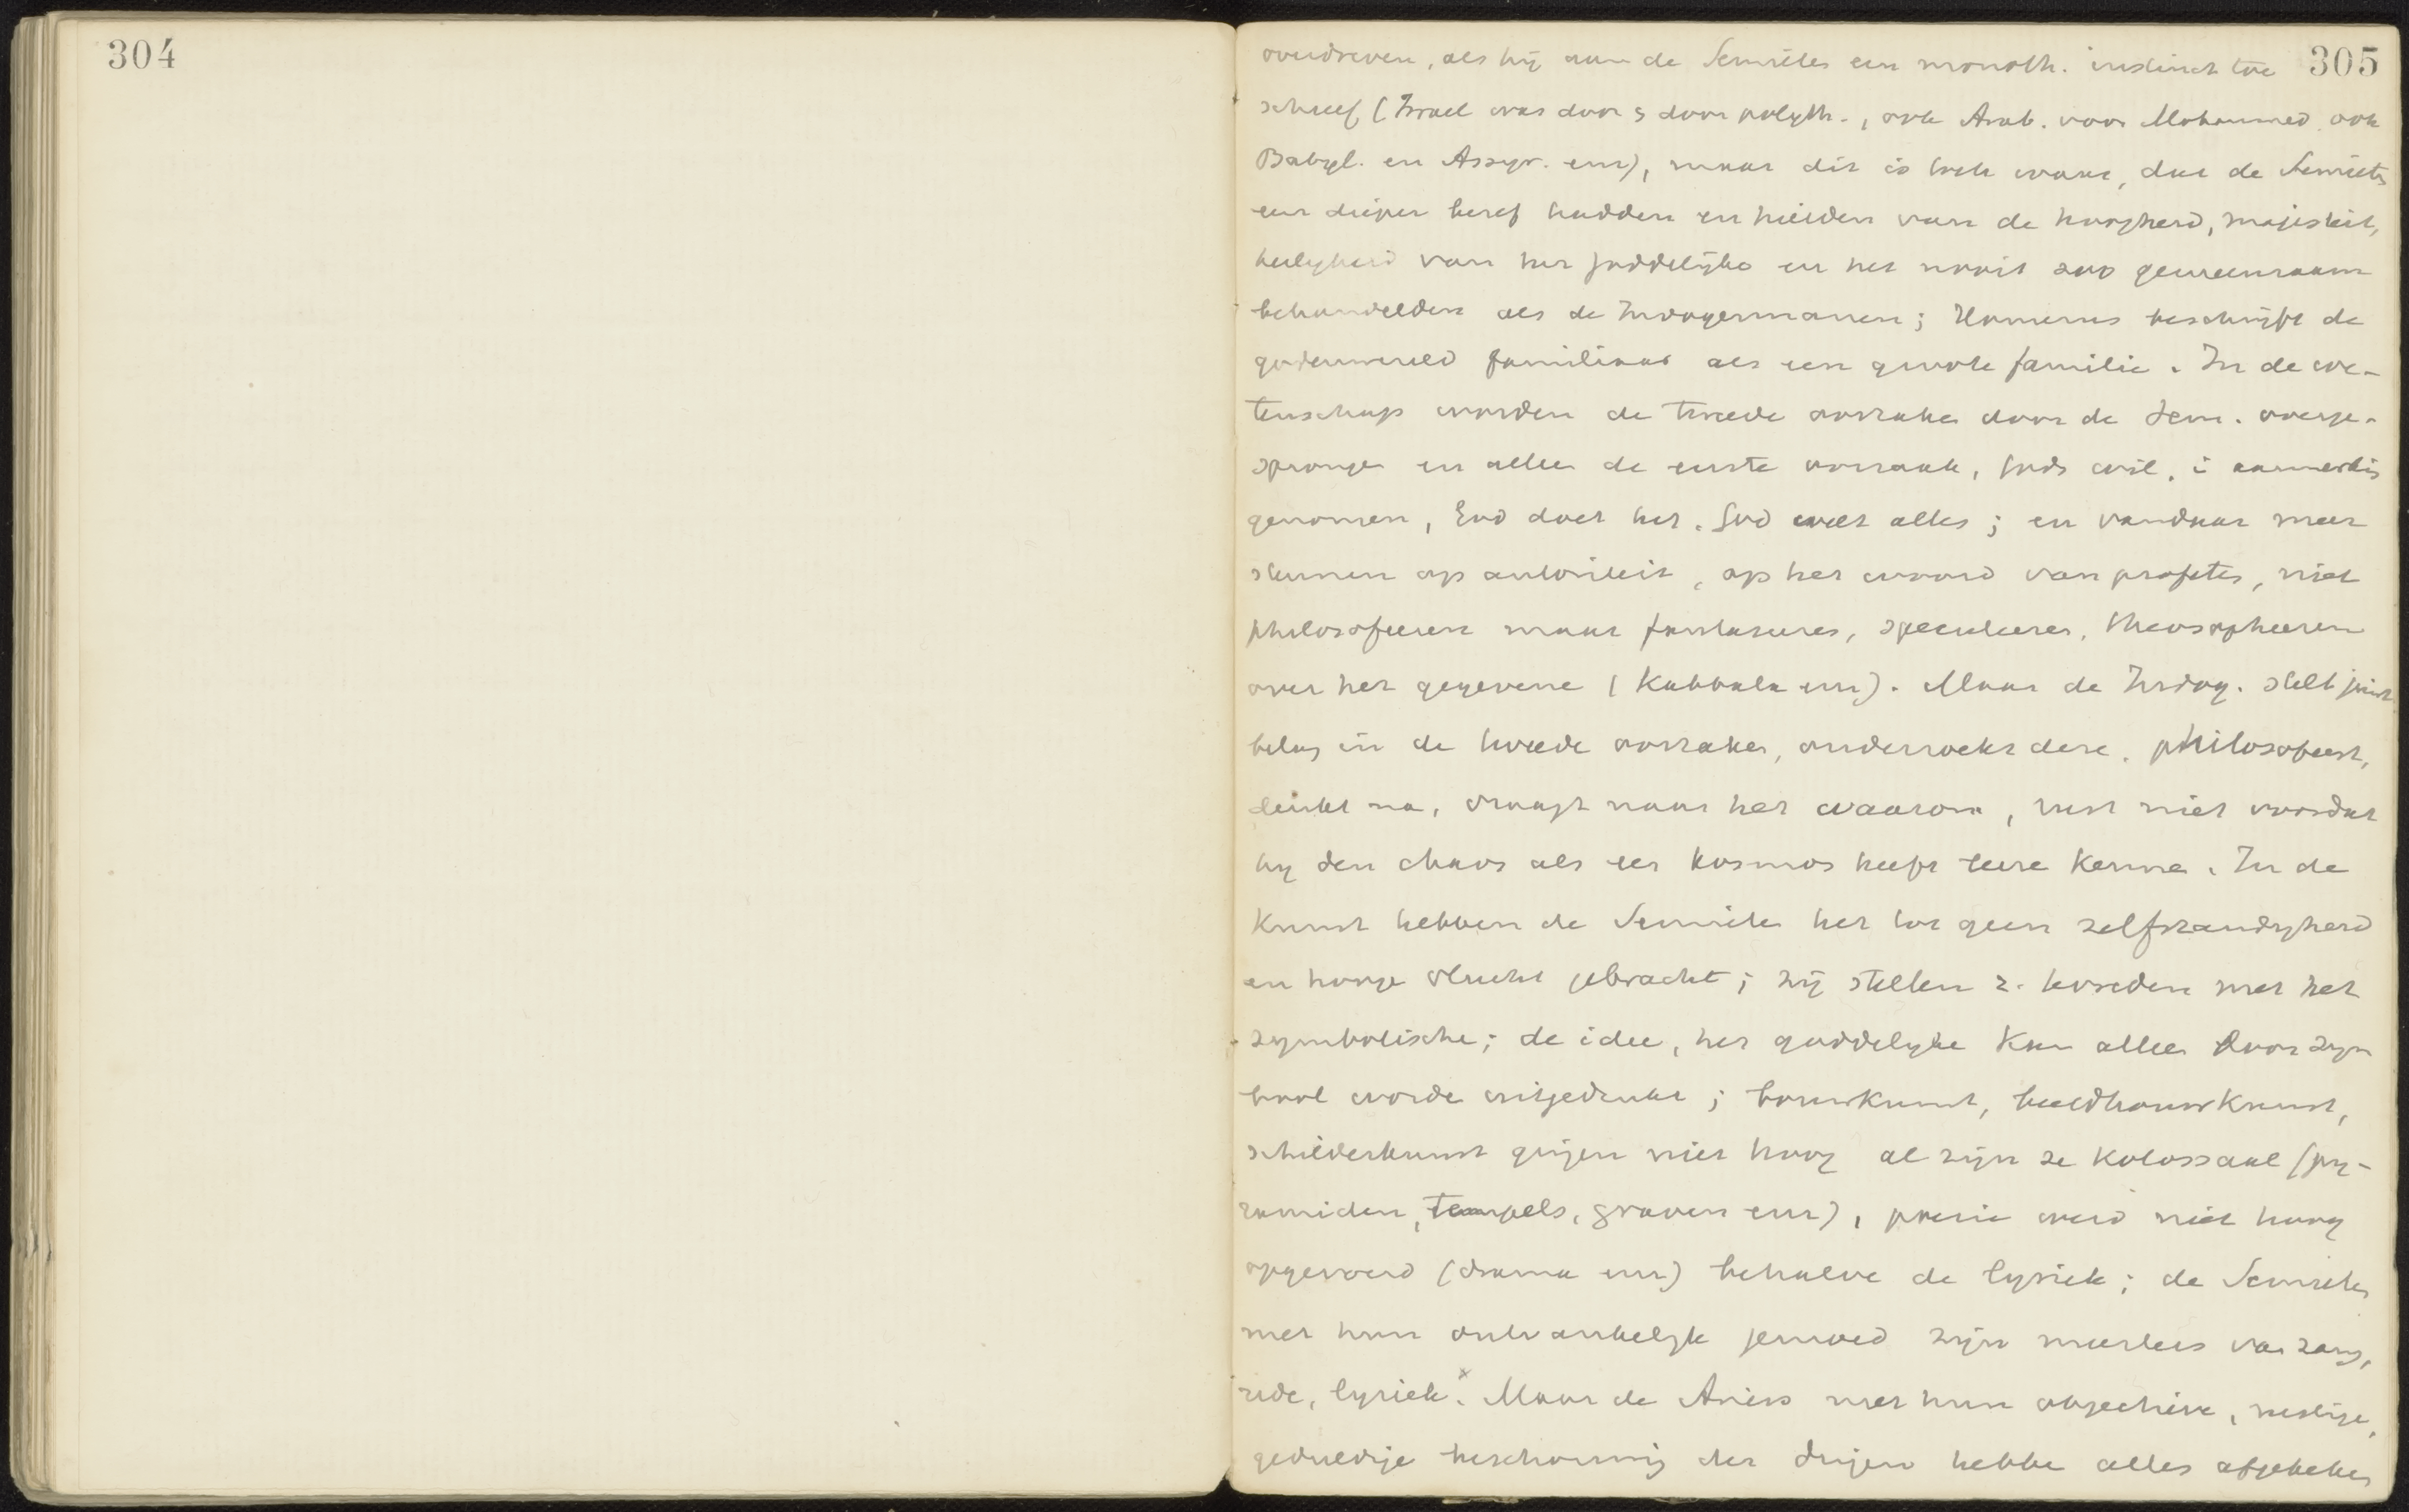 304
305
overdreven, als hij aan de Semieten een monoth. instinct toe
schreef (Israel was door & door polyth., ook Arab. voor Mohammed, ook
Babyl. en Assyr. enz), maar dit is toch waar, dat de Semieten
een dieper besef hadden en hielden van de hoogheid, majesteit,
heiligheid van het goddelijke en het nooit zoo gemeenzaam
behandelden als de Indogermanen; Homerus beschrijft de
godenwereld familiaar als een groote familie. In de we-
tenschap worden de tweede oorzaken door de Sem. overge-
sprongen en alleen de eerste oorzaak, Gods wil, in aanmerking
genomen, God doet het. God weet alles; en vandaar meer
steunen op autoriteit, op het woord van profeten, niet
philosofeeren maar fantaseeren, speculeeren, theosopheeren
over het gegevene (Kabbala enz). Maar de Indog. stelt juist
belang in de tweede oorzaken, onderzoekt deze, philosofeert,
denkt na, vraagt naar het waarom, rust niet voordat
hij den chaos als een kosmos heeft leeren kennen. In de
Kunst hebben de Semieten het tot geen zelfstandigheid
en hooge vlucht gebracht; zij stellen z. tevreden met het
symbolische; de idee, het goddelijke kan alleen door sym
bool worden uitgedrukt; bouwkunst, beeldhouwkunst,
schilderkunst gingen niet hoog al zijn ze kolossaal (py-
ramiden, tempels, graven enz), poezie werd niet hoog
opgevoerd (drama enz) behalve de lyriek; de Semieten
met hun ontvankelijk gemoed zijn meesters van zang,
rede, lyriek.x Maar de Ariers met hun objectieve, rustige,
geduldige beschouwing der dingen hebben alles afgekeken